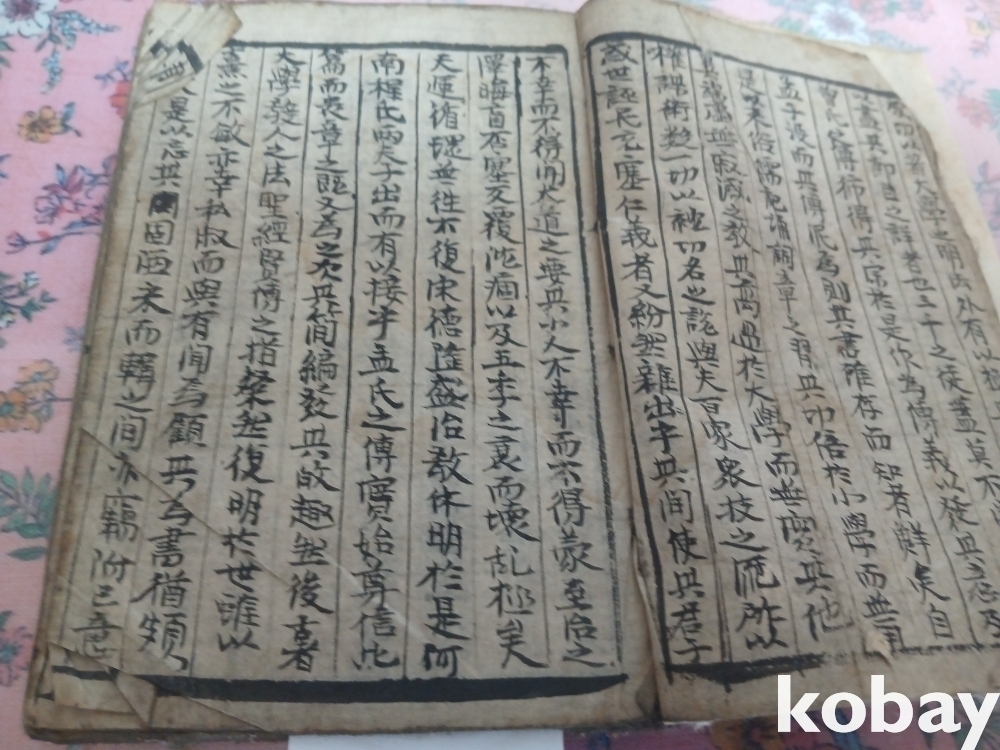 功以著大學之明法外有以極
盡其節目之詳者也三千之徒蓋莫不
曾氏之傳獨得其宗於是作為傳義以發其意及
孟子没而其傳泯焉則其書雖存而知者鮮矣自
是以来俗儒記誦詞章之習其功倍於小學而無用
異端虛無寂滅之教其高過於大學而無实其他
權謀術数一切以就功名之說與夫百家衆技之流所以
惑世誣民充塞仁義者又紛然雜出乎其间使其君子
不幸而不得闻大道之要其小人不幸而不得蒙至治之
澤晦盲否塞反覆沈痼以及五季之衰而壞乱極矣
天運循環無往不復宋德隆盛治教休明於是河
南程氏两夫子出而有以接乎孟氏之傳實始尊信此
篇而表章之既又為之次其簡編發其故趣然後古者
大學教人之法聖經賢傳之指粲然復明於世雖以
熹之不敏亦幸私淑而與有聞焉顧其為書猶頗
是以忘其固陋采而輯之间亦竊附己意
kobay